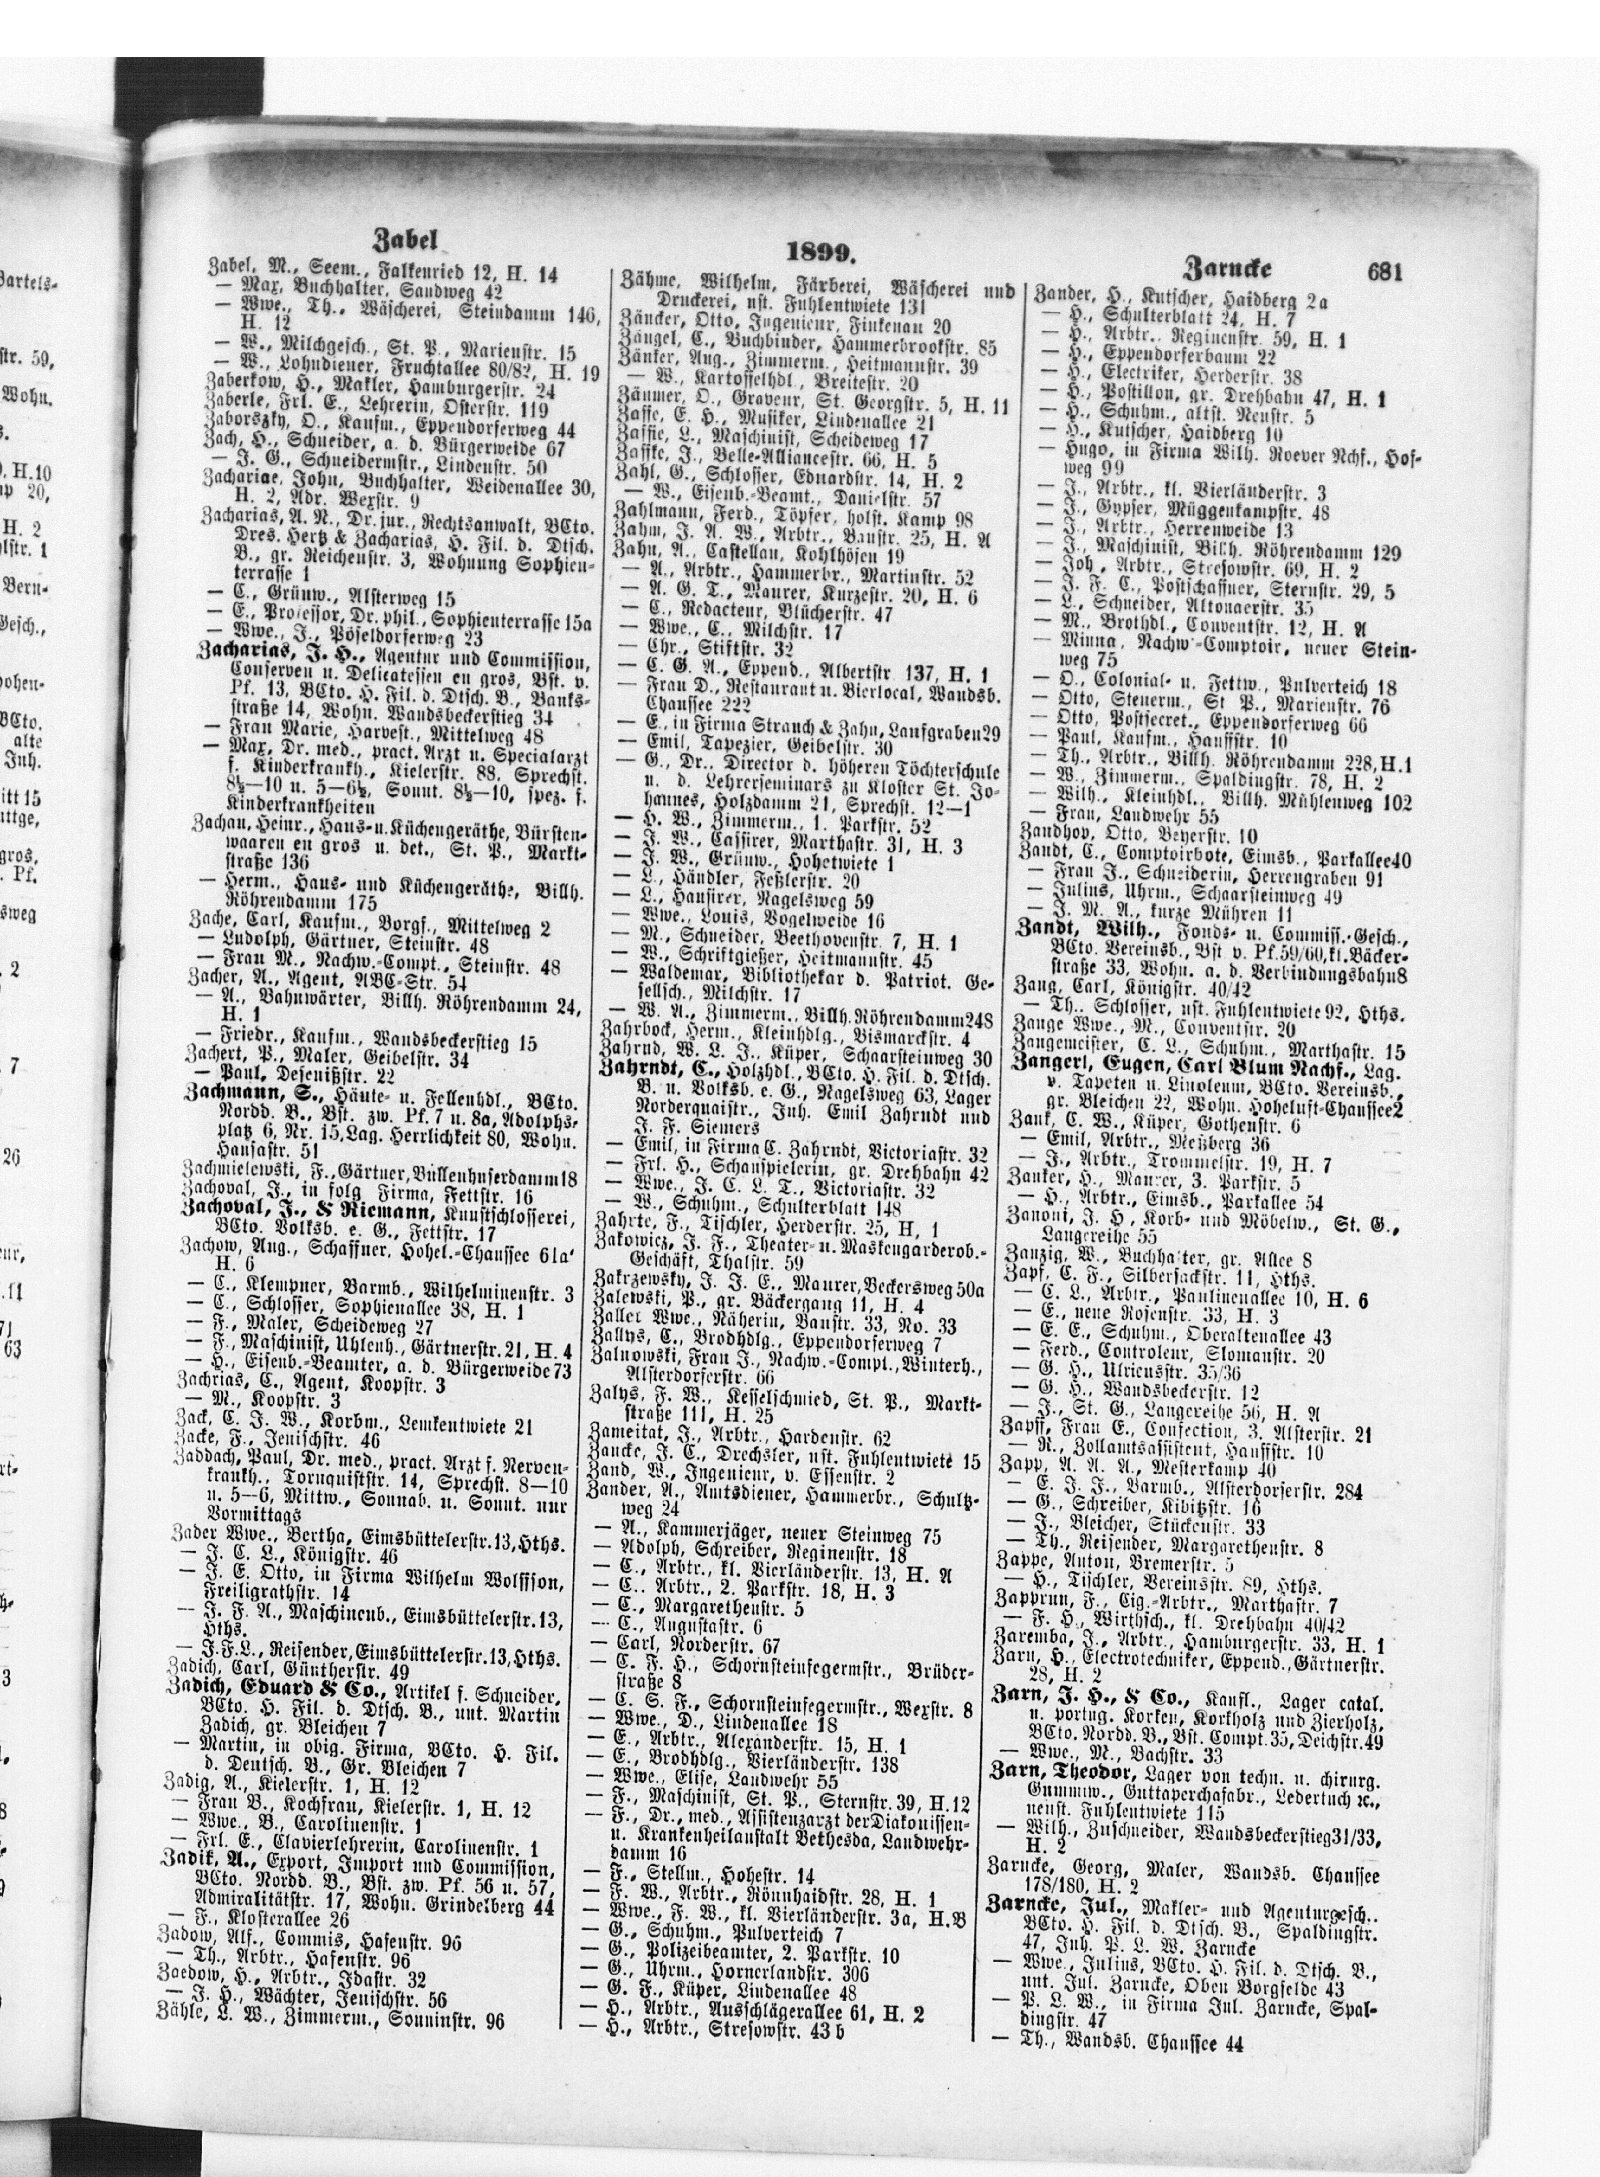 Zabel
1899.
Zarncke
681
Zabel, M., Seem., Falkenried 12, H. 14
— Max, Buchhalter, Sandweg 42
— Wwe., Th., Wäscherei, Steindamm 146,
H. 12
— W., Milchgesch., St. P., Marienstr. 15
— W., Lohndiener, Fruchtallee 80/82, H. 19
Zaberkow, H., Makler, Hamburgerstr. 24
Zaberle, Frl. E., Lehrerin, Osterstr. 119
Zaborszky, O., Kaufm., Eppendorferweg 44
Zach, H., Schneider, a. d. Bürgerweide 67
— J. G., Schneidermstr., Lindenstr. 50
Zachariae, John, Buchhalter, Weidenallee 30,
H. 2, Adr. Wexstr. 9
Zacharias, A. N., Dr. jur., Rechtsanwalt, BCto.
Dres. Hertz & Zacharias, H. Fil. d. Dtsch.
B., gr. Reichenstr. 3, Wohnung Sophien-
terrasse 1
— C., Grünw., Alsterweg 15
— E., Professor, Dr. phil., Sophienterrasse 15a
— Wwe., J., Pöseldorferweg 23
Zacharias, J. H., Agentur und Commission,
Conserven u. Delicatessen en gros, Bst. v.
Pf. 13, BCto. H. Fil. d. Dtsch. B., Banks-
straße 14, Wohn. Wandsbeckerstieg 34
— Frau Marie, Harvest., Mittelweg 48
— Max, Dr. med., pract. Arzt u. Specialarzt
f. Kinderkrankh., Kielerstr. 88, Sprechst.
8½—10 u. 5—6½, Sonnt. 8½—10, spez. f.
Kinderkrankheiten
Zachau, Heinr., Haus- u. Küchengeräthe, Bürsten-
waaren en gros u. det., St. P., Markt-
straße 136
— Herm., Haus- und Küchengeräthe, Billh.
Röhrendamm 175
Zache, Carl, Kaufm., Borgf., Mittelweg 2
— Ludolph, Gärtner, Steinstr. 48
— Frau M., Nachw.-Compt., Steinstr. 48
Zacher, A., Agent, ABC-Str. 54
— A., Bahnwärter, Billh. Röhrendamm 24,
H. 1
— Friedr., Kaufm., Wandsbeckerstieg 15
Zachert, P., Maler, Geibelstr. 34
— Paul, Desenißstr. 22
Zachmann, S., Häute- u. Fellenhdl., BCto.
Nordd. B., Bst. zw. Pf. 7 u. 8a, Adolphs-
platz 6, Nr. 15, Lag. Herrlichkeit 80, Wohn.
Hansastr. 51
Zachmielewski, F., Gärtner, Bullenhuserdamm 18
Zachoval, J., in folg. Firma, Fettstr. 16
Zachoval, J., & Riemann, Kunstschlosserei,
BCto. Volksb. e. G., Fettstr. 17
Zachow, Aug., Schaffner, Hohel.-Chaussee 61a'
H. 6
— C., Klempner, Barmb., Wilhelminenstr. 3
— C., Schlosser, Sophienallee 38, H. 1
— F., Maler, Scheideweg 27
— F., Maschinist, Uhlenh., Gärtnerstr. 21, H. 4
— H., Eisenb.-Beamter, a. d. Bürgerweide 73
Zachrias, C., Agent, Koopstr. 3
— M., Koopstr. 3
Zack, C. J. W., Korbm., Lemkentwiete 21
Zacke, F., Jenischstr. 46
Zaddach, Paul, Dr. med., pract. Arzt f. Nerven-
krankh., Tornquiststr. 14, Sprechst. 8—10
u. 5—6, Mittw., Sonnab. u. Sonnt. nur
Vormittags
Zader Wwe., Bertha, Eimsbüttelerstr. 13, Hths.
— J. C. L., Königstr. 46
— J. E. Otto, in Firma Wilhelm Wolffson,
Freiligrathstr. 14
— J. F. A., Maschinenb., Eimsbüttelerstr. 13,
Hths.
— J. F. L., Reisender, Eimsbüttelerstr. 13, Hths.
Zadich, Carl, Güntherstr. 49
Zadich, Eduard & Co., Artikel f. Schneider,
BCto. H. Fil. d. Dtsch. B., unt. Martin
Zadich, gr. Bleichen 7
— Martin, in obig. Firma, BCto. H. Fil.
d. Deutsch. B., Gr. Bleichen 7
Zadig, A., Kielerstr. 1, H. 12
— Frau B., Kochfrau, Kielerstr. 1, H. 12
— Wwe., B., Carolinenstr. 1
— Frl. E., Clavierlehrerin, Carolinenstr. 1
Zadik, A., Export, Import und Commission,
BCto. Nordd. B., Bst. zw. Pf. 56 u. 57,
Admiralitätstr. 17, Wohn. Grindelberg 44
— F., Klosterallee 26
Zadow, Alf., Commis, Hafenstr. 96
— Th., Arbtr., Hafenstr. 96
Zaedow, H., Arbtr., Idastr. 32
— J. H., Wächter, Jenischstr. 56
Zähle, L. W., Zimmerm., Sonninstr. 96
Zähme, Wilhelm, Färberei, Wäscherei und
Druckerei, nst. Fuhlentwiete 131
Zäncker, Otto, Ingenieur, Finkenau 20
Zängel, C., Buchbinder, Hammerbrookstr. 85
Zänker, Aug., Zimmerm., Heitmannstr. 39
— W., Kartoffelhdl., Breitestr. 20
Zäumer, O., Graveur, St. Georgstr. 5, H. 11
Zaffe, E. H., Musiker, Lindenallee 21
Zaffie, L., Maschinist, Scheideweg 17
Zaffke, J., Belle-Alliancestr. 66, H. 5
Zahl, G., Schlosser, Eduardstr. 14, H. 2
— W., Eisenb.-Beamt., Danielstr. 57
Zahlmann, Ferd., Töpfer, holst. Kamp 98
Zahm, J. A. W., Arbtr., Banstr. 25, H. A
Zahn, A., Castellan, Kohlhöfen 19
— A., Arbtr., Hammerbr., Martinstr. 52
— A. G. T., Maurer, Kurzestr. 20, H. 6
— C., Redacteur, Blücherstr. 47
— Wwe., C., Milchstr. 17
— Chr., Stiftstr. 32
— C. G. A., Eppend., Albertstr 137, H. 1
— Frau D., Restaurant u. Bierlocal, Wandsb.
Chaussee 222
— E., in Firma Strauch & Zahn, Laufgraben 29
— Emil, Tapezier, Geibelstr. 30
— G., Dr., Director d. höheren Töchterschule
u. d. Lehrerseminars zu Kloster St. Jo-
hannes, Holzdamm 21, Sprechst. 12—1
— H. W., Zimmerm., 1. Parkstr. 52
— J. W., Cassirer, Marthastr. 31, H. 3
— J. W., Grünw., Hohetwiete 1
— L., Händler, Feßlerstr. 20
— L., Hausirer, Nagelsweg 59
— Wwe., Louis, Vogelweide 16
— M., Schneider, Beethovenstr. 7, H. 1
— W., Schriftgießer, Heitmannstr. 45
— Waldemar, Bibliothekar d. Patriot. Ge-
sellsch., Milchstr. 17
— W. A., Zimmerm., Billh. Röhrendamm 248
Zahrbock, Herm., Kleinhdlg., Bismarckstr. 4
Zahrnd, W. L. J., Küper, Schaarsteinweg 30
Zahrndt, C., Holzhdl., BCto. H. Fil. d. Dtsch.
B. u. Volksb. e. G., Nagelsweg 63, Lager
Norderquaistr., Inh. Emil Zahrndt und
J. F. Siemers
— Emil, in Firma C. Zahrndt, Victoriastr. 32
— Frl. H., Schauspielerin, gr. Drehbahn 42
— Wwe., J. C. L. T., Victoriastr. 32
— W., Schuhm., Schulterblatt 148
Zahrte, F., Tischler, Herderstr. 25, H, 1
Zakowicz, J. F., Theater- u. Maskengarderob.-
Geschäft, Thalstr. 59
Zakrzewsky, J. J. E., Maurer, Beckersweg 50a
Zalewski, P., gr. Bäckergang 11, H. 4
Zallet Wwe., Näherin, Banstr. 33, No. 33
Zallys, C., Brodhdlg., Eppendorferweg 7
Zalnowski, Frau J., Nachw.-Compt., Winterh.,
Alsterdorferstr. 66
Zalys, F. W., Kesselschmied, St. P., Markt-
straße 111, H. 25
Zameitat, J., Arbtr., Hardenstr. 62
Zancke, J. C., Drechsler, nst. Fuhlentwiete 15
Zand, W., Ingenieur, v. Essenstr. 2
Zander, A., Amtsdiener, Hammerbr., Schultz-
weg 24
— A., Kammerjäger, neuer Steinweg 75
— Adolph, Schreiber, Reginenstr. 18
— C., Arbtr., kl. Vierländerstr. 13, H. A
— C., Arbtr., 2. Parkstr. 18, H. 3
— C., Margarethenstr. 5
— C., Augustastr. 6
— Carl, Norderstr. 67
— C. F. H., Schornsteinfegermstr., Brüder-
straße 8
— C. S. F., Schornsteinfegermstr., Wexstr. 8
— Wwe., D., Lindenallee 18
— E., Arbtr., Alexanderstr. 15, H. 1
— E., Brodhdlg., Vierländerstr. 138
— Wwe., Elise, Landwehr 55
— F., Maschinist, St. P., Sternstr. 39, H. 12
— F., Dr., med., Assistenzarzt der Diakonissen-
u. Krankenheilanstalt Bethesda, Landwehr-
damm 16
— F., Stellm., Hohestr. 14
— F. W., Arbtr., Rönnhaidstr. 28, H. 1
— Wwe., F. W., kl. Vierländerstr. 3a, H. B
— G., Schuhm., Pulverteich 7
— G., Polizeibeamter, 2. Parkstr. 10
— G., Uhrm., Hornerlandstr. 306
— G. F., Küper, Lindenallee 48
— H., Arbtr., Ausschlägerallee 61, H. 2
— H., Arbtr., Stresowstr. 43 b
Zander, H., Kutscher, Haidberg 2a
— H., Schulterblatt 24, H. 7
— H., Arbtr., Reginenstr. 59, H. 1
— H., Eppendorferbaum 22
— H., Electriker, Herderstr. 38
— H., Postillon, gr. Drehbahn 47, H. 1
— H., Schuhm., altst. Neustr. 5
— H., Kutscher, Haidberg 10
— Hugo, in Firma Wilh. Roever Nchf., Hof-
weg 99
— J., Arbtr., kl. Vierländerstr. 3
— J., Gypser, Müggenkampstr. 48
— J., Arbtr., Herrenweide 13
— J., Maschinist, Billh. Röhrendamm 129
— Joh., Arbtr., Stresowstr. 69, H. 2
— J. F. C., Postschaffner, Sternstr. 29, 5
— L., Schneider, Altonaerstr. 35
— M., Brothdl., Conventstr. 12, H. A
— Minna, Nachw.-Comptoir, neuer Stein-
weg 75
— O., Colonial- u. Fettw., Pulverteich 18
— Otto, Steuerm., St P., Marienstr. 76
— Otto, Postsecret., Eppendorferweg 66
— Paul, Kaufm., Hauffstr. 10
— Th., Arbtr., Billh. Röhrendamm 228, H. 1
— W., Zimmerm., Spaldingstr. 78, H. 2
— Wilh., Kleinhdl., Billh. Mühlenweg 102
— Frau, Landwehr 55
Zandhop, Otto, Beyerstr. 10
Zandt, C., Comptoirbote, Eimsb., Parkallee 40
— Frau J., Schneiderin, Herrengraben 91
— Julius, Uhrm., Schaarsteinweg 49
— J. M. A., kurze Mühren 11
Zandt, Wilh., Fonds- u. Commiss.-Gesch.,
BCto. Vereinsb., Bst v. Pf. 59/60, kl. Bäcker-
straße 33, Wohn. a. d. Verbindungsbahn 8
Zang, Carl, Königstr. 40/42
— Th., Schlosser, nst. Fuhlentwiete 92, Hths.
Zange Wwe., M., Conventstr. 20
Zangemeister, C. L., Schuhm., Marthastr. 15
Zangerl, Eugen, Carl Blum Nachf., Lag.
v. Tapeten u. Linoleum, BCto. Vereinsb.,
gr. Bleichen 22, Wohn. Hoheluft-Chaussee 2
Zank, C. W., Küper, Gothenstr. 6
— Emil, Arbtr., Meßberg 36
— J., Arbtr., Trommelstr. 19, H. 7
Zanker, H., Maurer, 3. Parkstr. 5
— H., Arbtr., Eimsb., Parkallee 54
Zanoni, J. H, Korb- und Möbelw., St. G.,
Langereihe 55
Zanzig, W., Buchhalter, gr. Allee 8
Zapf, C. F., Silbersackstr. 11, Hths.
— C. L., Arbtr., Paulinenallee 10, H. 6
— E., neue Rosenstr. 33, H. 3
— E. E., Schuhm., Oberaltenallee 43
— Ferd., Controleur, Slomanstr. 20
— G. H., Ulricusstr. 35/36
— G. H., Wandsbeckerstr. 12
— J., St. G., Langereihe 56, H. A
Zapff, Frau E., Confection, 3. Alsterstr. 21
— R., Zollamtsassistent, Hauffstr. 10
Zapp, A. A. A., Mesterkamp 40
— E. J. F., Barmb., Alsterdorferstr. 284
— G., Schreiber, Kibitzstr. 16
— J., Bleicher, Stückenstr. 33
— Th., Reisender, Margarethenstr. 8
Zappe, Anton, Bremerstr. 5
— H., Tischler, Vereinsstr. 89, Hths.
Zapprun, F., Cig.-Arbtr., Marthastr. 7
— F. H., Wirthsch., kl. Drehbahn 40/42
Zaremba, J., Arbtr., Hamburgerstr. 33, H. 1
Zarn, H., Electrotechniker, Eppend., Gärtnerstr.
28, H. 2
Zarn, J. H., & Co., Kaufl., Lager catal.
u. portug. Korken, Korkholz und Zierholz,
BCto. Nordd. B., Bst. Compt. 35, Deichstr. 49
— Wwe., M., Bachstr. 33
Zarn, Theodor, Lager von techn. u. chirurg.
Gummiw., Guttaperchafabr., Ledertuch ꝛc.,
neust. Fuhlentwiete 115
— Wilh., Zuschneider, Wandsbeckerstieg 31/33,
H. 2
Zarncke, Georg, Maler, Wandsb. Chaussee
178/180, H. 2
Zarncke, Jul., Makler- und Agenturgesch..
BCto. H. Fil. d. Dtsch. B., Spaldingstr.
47, Inh. P. L. W. Zarncke
— Wwe., Julius, BCto. H. Fil. d. Dtsch. B.,
unt. Jul. Zarncke, Oben Borgfelde 43
— P. L. W., in Firma Jul. Zarncke, Spal-
dingstr. 47
— Th., Wandsb. Chaussee 44